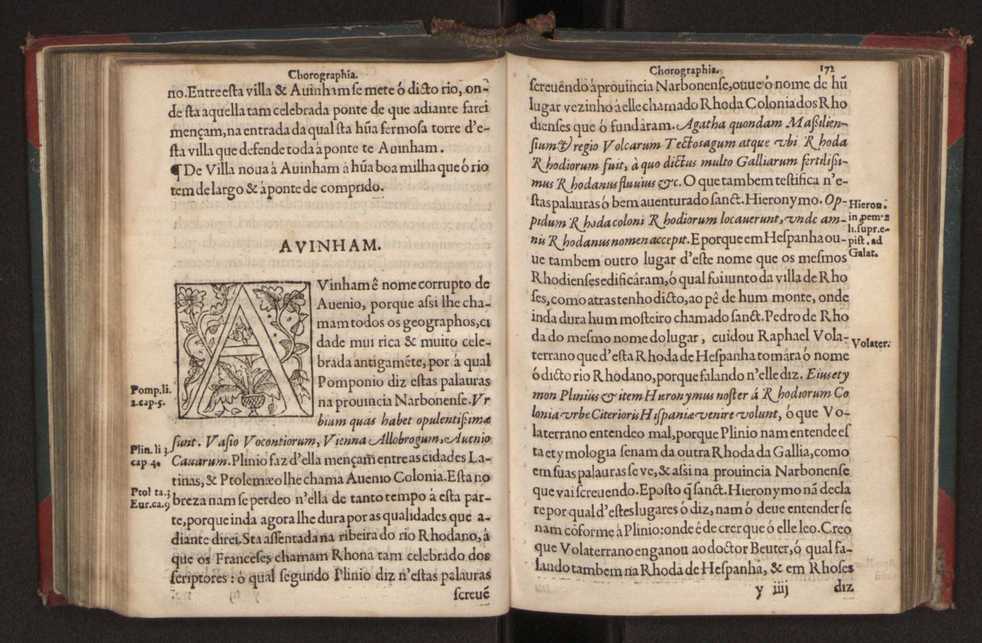 Chorographia.
rio. Entre esta villa & Auinham se mete ó dicto rio, on-
de sta aquella tam celebrada ponte de que adiante farei
mençam, na entrada da qual sta hũa fermosa torre d'e-
sta villa que defende toda á ponte te Auinham.
¶ De Villa noua à Auinham à hũa boa milha que ó rio
tem de largo & à ponte de comprido.
AVINHAM.
AVinham ê nome corrupto de
Auenio, porque assi lhe cha-
mam todos os geographos, ci
dade mui rica & muito cele-
brada antigamẽte, por á qual
Pomponio diz estas palauras
na prouincia Narbonense. Vr
bium quas habet opulentissimæ
sunt. Vasio Vocontiorum, Vienna Allobrogum, Auenio
Cauarum. Plinio faz d'ella mençam entre as cidades La-
tinas, & Ptolemæo lhe chama Auenio Colonia. Esta no
breza nam se perdeo n'ella de tanto tempo à esta par-
te, porque inda agora lhe dura por as qualidades que a-
diante direi. Sta assentada na ribeira do rio Rhodano, à
que os Franceses chamam Rhona tam celebrado dos
scriptores: ó qual segundo Plinio diz n'estas palauras
screuẽ
Pomp. li.
2. cap. 5.
Plin. li 3
cap 4.
Ptol ta. 3
Eur. ca. 9
Chorographia. 172
screuẽndo à prouincia Narbonense, ouue ó nome de hũ
lugar vezinho à elle chamado Rhoda Colonia dos Rho
dienses que ó fundàram. Agatha quondam Massilien-
sium & regio Volcarum Tectosagum atque vbi Rhoda
Rhodiorum fuit, à quo dictus multo Galliarum fertilissi-
mus Rhodanus fluuius &c. O que tambem testifica n'e-
stas palauras ó bemauenturado sanct. Hieronymo. Op-
pidum Rhoda coloni Rhodiorum locauerunt, vnde am-
nis Rhodanus nomen accepit. E porque em Hespanha ou-
ue tambem outro lugar d'este nome que os mesmos
Rhodienses edificàram, ó qual foi iunto da villa de Rho
ses, como atras tenho dicto, ao pê de hum monte, onde
inda dura hum mosteiro chamado sanct. Pedro de Rho
da do mesmo nome do lugar, cuidou Raphael Vola-
terrano que d'esta Rhoda de Hespanha tomára ó nome
ó dicto rio Rhodano, porque falando n'elle diz. Eius ety
mon Plinius & item Hieronymus noster á Rhodiorum Co
lonia vrbe Citerioris Hispaniæ venire volunt, ó que Vo-
laterrano entendeo mal, porque Plinio nam entende es
ta etymologia senam da outra Rhoda da Gallia, como
em suas palauras se ve, & assi na prouincia Narbonense
que vai screuendo. E posto q̃ sanct. Hieronymo nã decla
re por qual d'estes lugares ó diz, nam ó deue entender se
nam cõforme à Plinio: onde ê de crer que ó elle leo. Creo
que Volaterrano enganou ao doctor Beuter, ó qual fa-
lando tambem na Rhoda de Hespanha, & em Rhoses
y iiij diz
Hieron.
in pem. 2
li. supr. e-
pist. ad
Galat.
Volater.